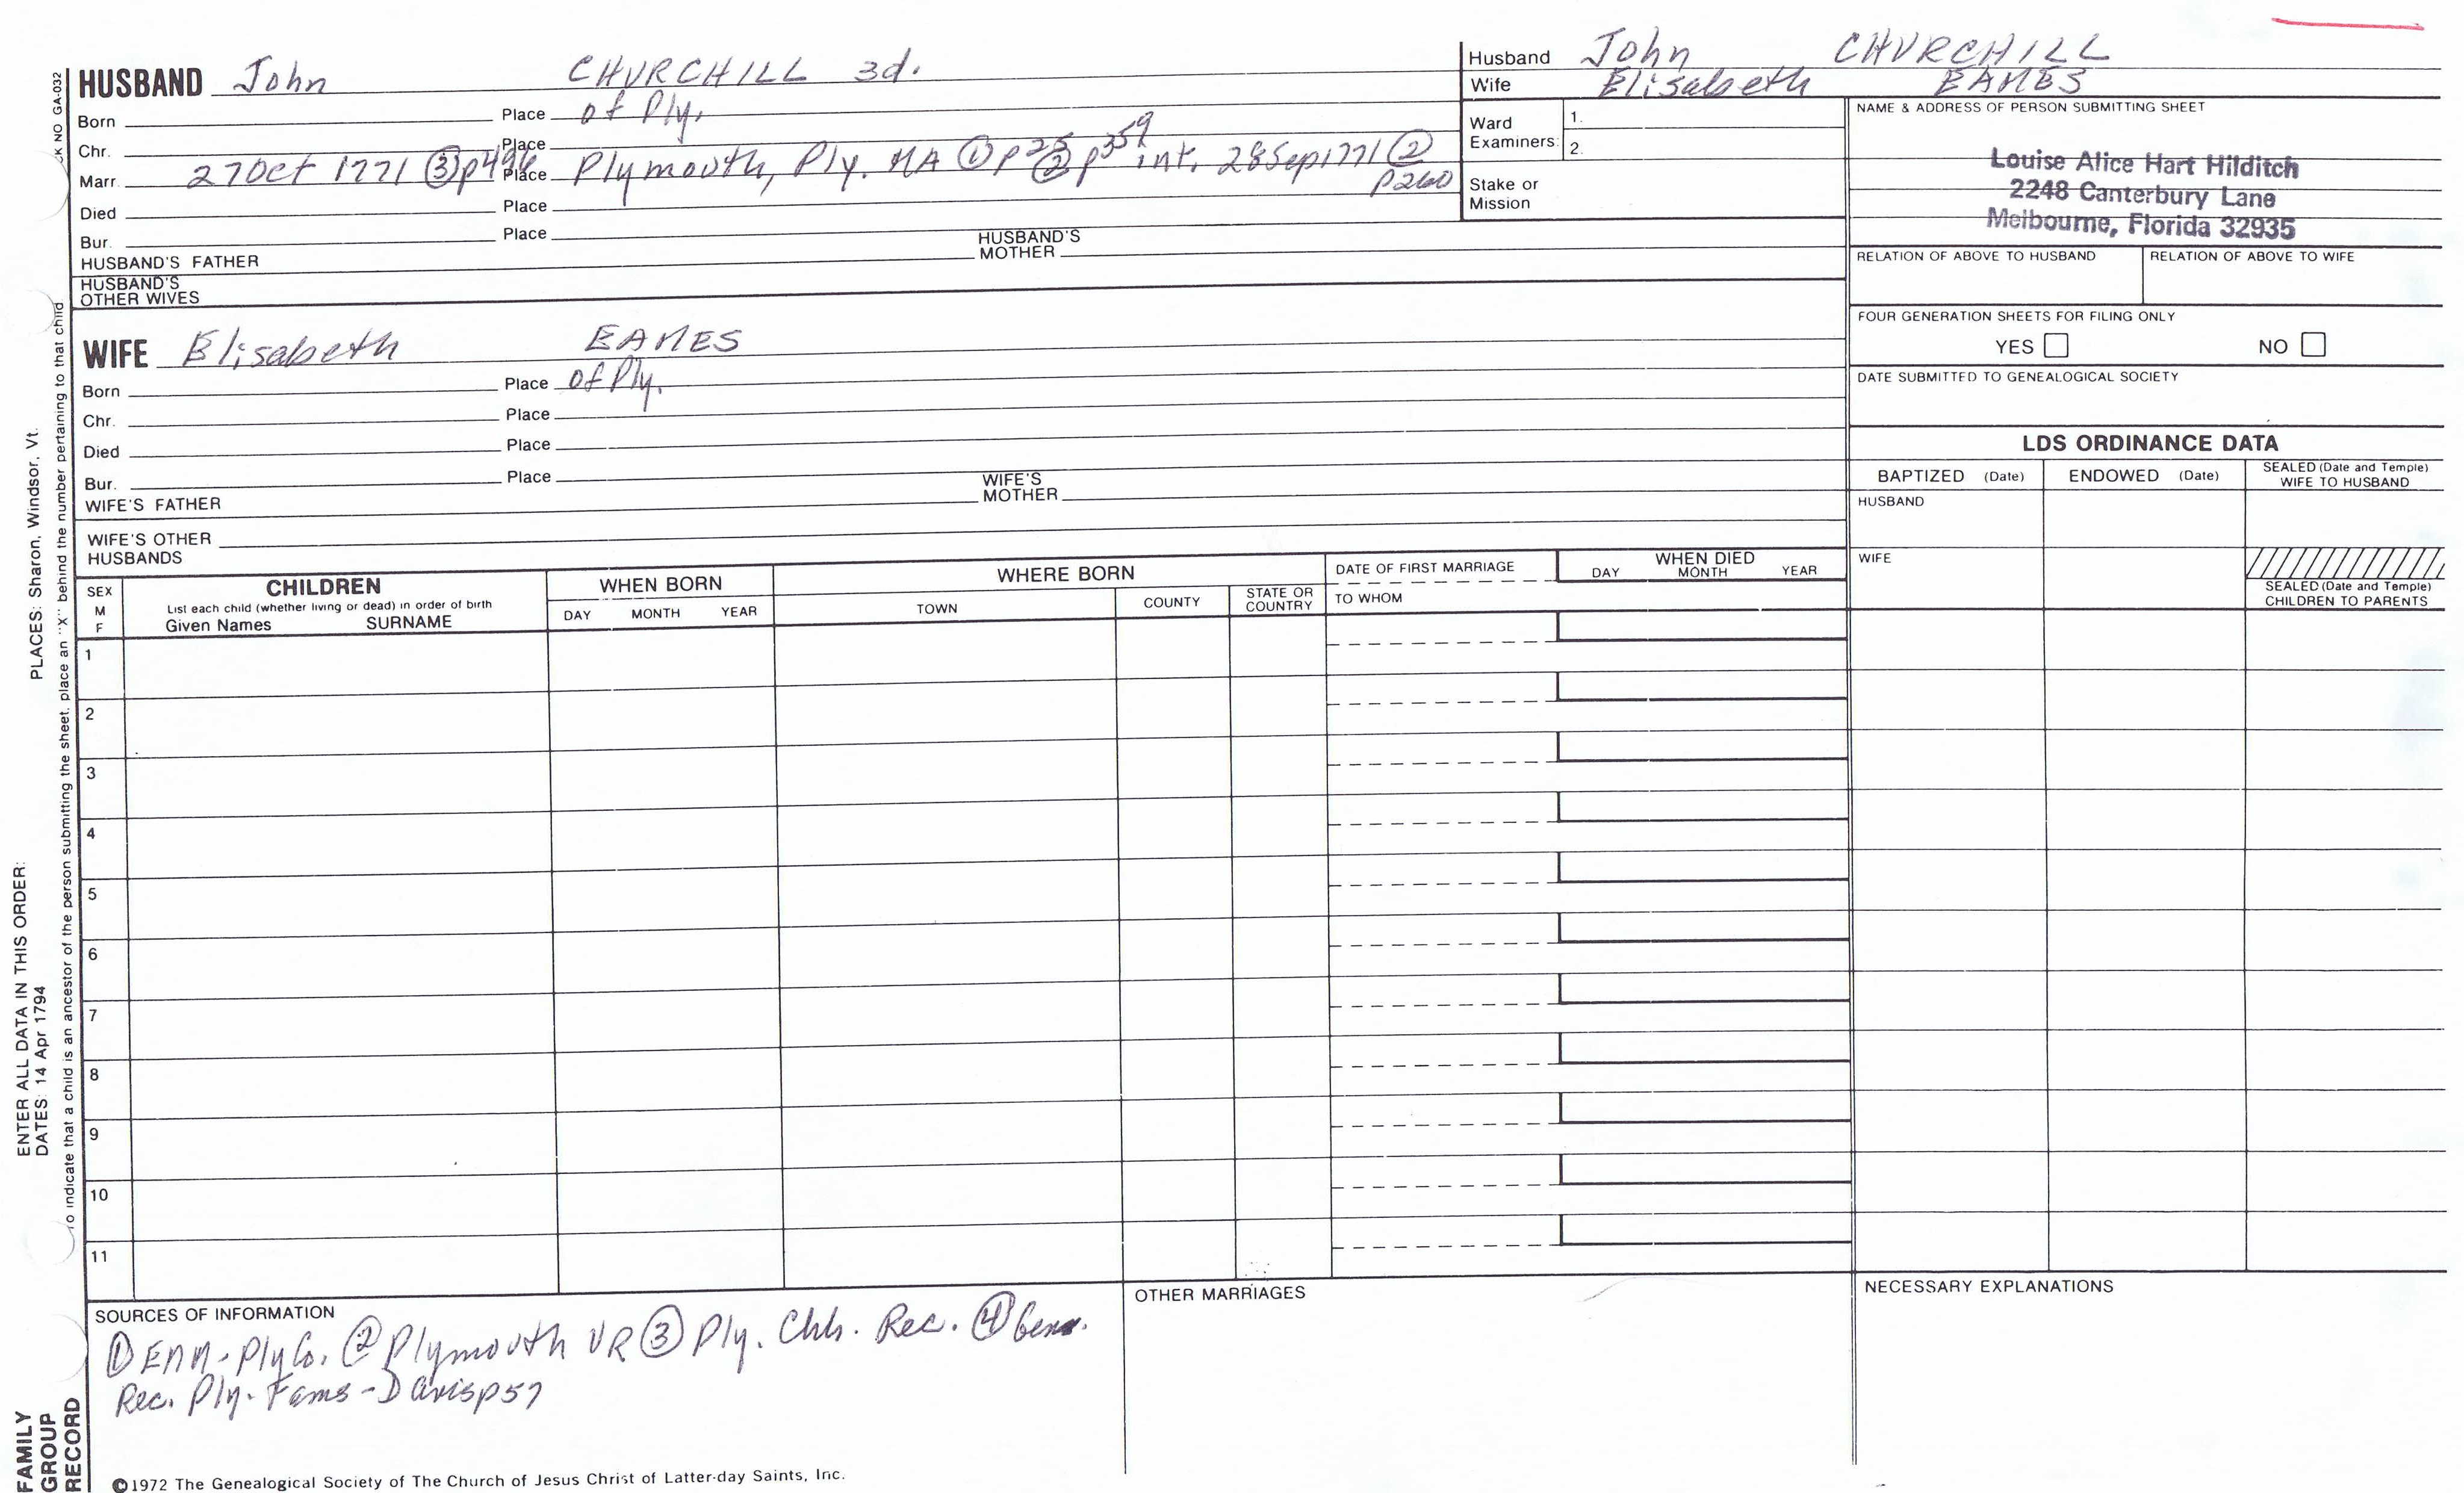 HUSBAND John CHURCHILL 3d.
Born Place of Ply.
Chr. Place
Marr. 27 Oct 1771 ③ p496 Place Plymouth, Ply. MA ① p25 ② p359 int. 28 Sep 1771 ② p260
Died Place
Bur. Place
HUSBAND'S FATHER HUSBAND'S MOTHER
HUSBAND'S OTHER WIVES
WIFE Elisabeth EAMES
Born Place of Ply.
Chr. Place
Died Place
Bur. Place
WIFE'S FATHER WIFE'S MOTHER
WIFE'S OTHER HUSBANDS
Husband John CHURCHILL
Wife Elisabeth EAMES
Ward Examiners: 1.
2.
Stake or Mission
NAME & ADDRESS OF PERSON SUBMITTING SHEET
Louise Alice Hart Hilditch
2248 Canterbury Lane
Melbourne, Florida 32935
RELATION OF ABOVE TO HUSBAND RELATION OF ABOVE TO WIFE
FOUR GENERATION SHEETS FOR FILING ONLY
YES NO
DATE SUBMITTED TO GENEALOGICAL SOCIETY
LDS ORDINANCE DATA
BAPTIZED (Date) ENDOWED (Date) SEALED (Date and Temple) WIFE TO HUSBAND
HUSBAND
WIFE
SEALED (Date and Temple) CHILDREN TO PARENTS
SEX M F
CHILDREN
List each child (whether living or dead) in order of birth
Given Names SURNAME
WHEN BORN
DAY MONTH YEAR
WHERE BORN
TOWN COUNTY STATE OR COUNTRY
DATE OF FIRST MARRIAGE
TO WHOM
WHEN DIED
DAY MONTH YEAR
1
2
3
4
5
6
7
8
9
10
11
SOURCES OF INFORMATION
① EAM-Ply Co. ② Plymouth VR ③ Ply. Chh. Rec. ④ Gen.
Rec. Ply. Fams - Davis p57
OTHER MARRIAGES
NECESSARY EXPLANATIONS
©1972 The Genealogical Society of The Church of Jesus Christ of Latter-day Saints, Inc.
FAMILY GROUP RECORD
ENTER ALL DATA IN THIS ORDER:
DATES: 14 Apr 1794 PLACES: Sharon, Windsor, Vt.
To indicate that a child is an ancestor of the person submitting the sheet, place an "X" behind the number pertaining to that child
NO GA-032